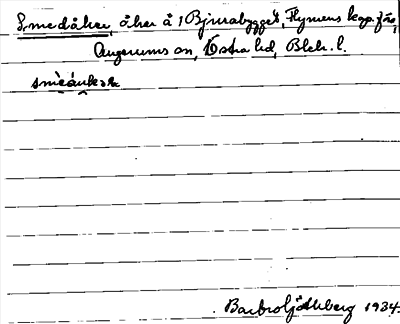 Smedåker, åker å 1 Bjurabygget, Flymens kap.förs,
Augerums sn, Östra hd, Blek. l.
Barbro Söderberg 1934.